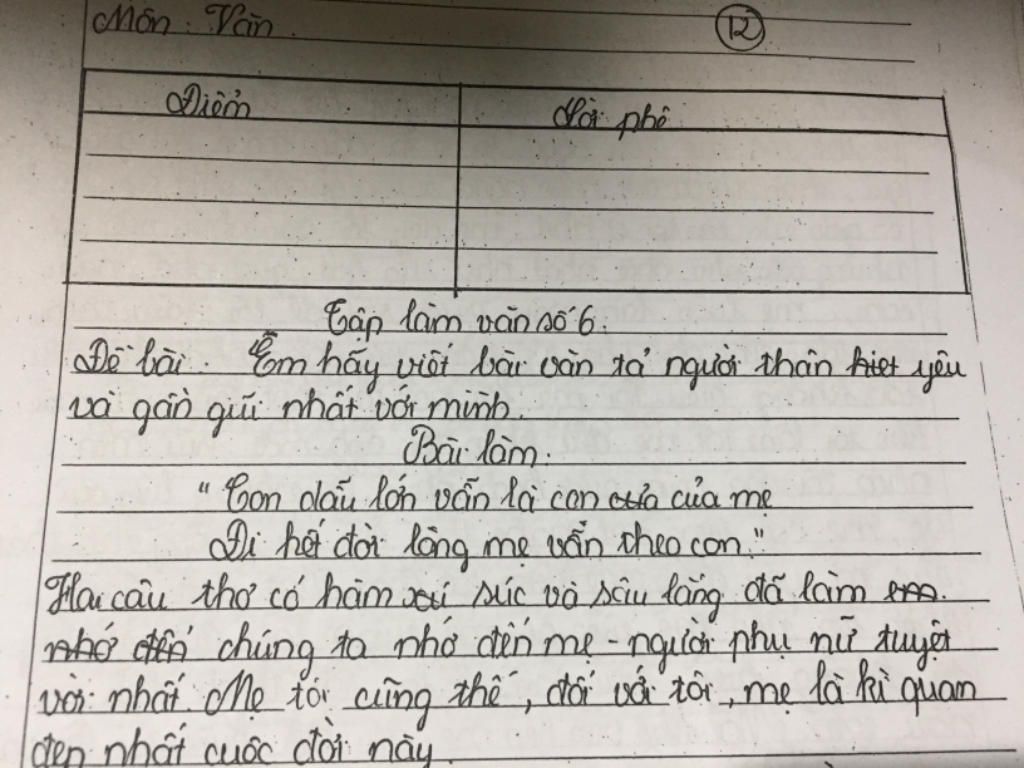 Môn: Văn.
12
Điểm
Lời phê
Tập làm văn số 6.
Đề bài. Em hãy viết bài văn tả người thân kiet yêu
và gần gũi nhất với mình.
Bài làm.
"Con dẫu lớn vẫn là con cưa của mẹ
Đi hết đời lòng mẹ vẫn theo con."
Hai câu thơ có hàm xú súc và sâu lắng đã làm em.
nhớ đến chúng ta nhớ đến mẹ - người phụ nữ tuyệt
vời nhất. Mẹ tôi cũng thế, đối với tôi, mẹ là kì quan
đẹp nhất cuộc đời này.